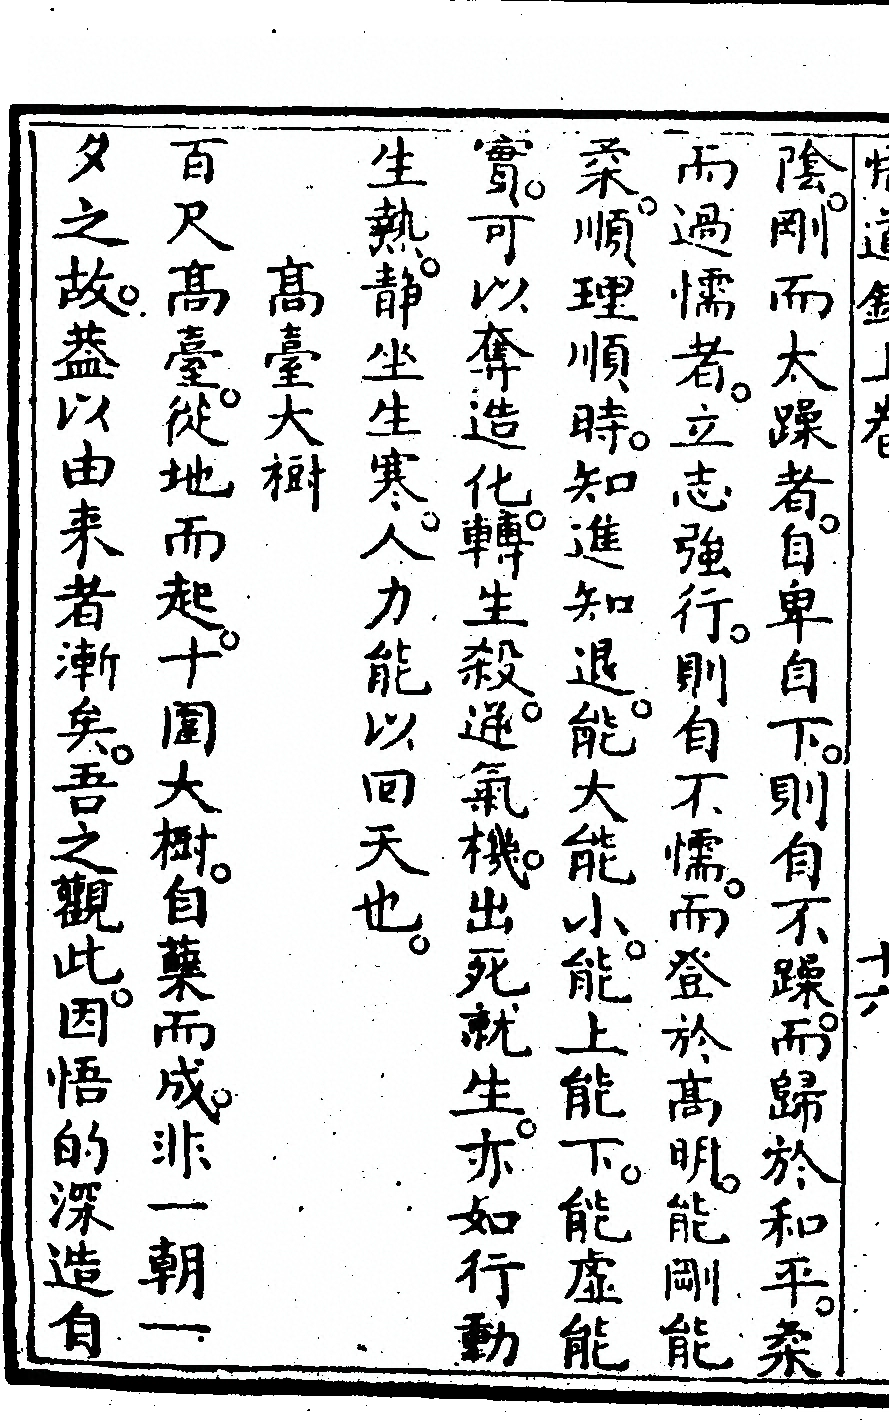 悟道錄上卷 十六
陰。剛而太躁者。自卑自下。則自不躁。而歸於和平。柔
而過懦者。立志強行。則自不懦。而登於高明。能剛能
柔。順理順時。知進知退。能大能小。能上能下。能虛能
實。可以奪造化。轉生殺。逆氣機。出死就生。亦如行動
生熱。靜坐生寒。人力能以回天也。
高臺大樹
百尺高臺。從地而起。十圍大樹。自蘖而成。非一朝一
夕之故。葢以由来者漸矣。吾之觀此。因悟的深造自